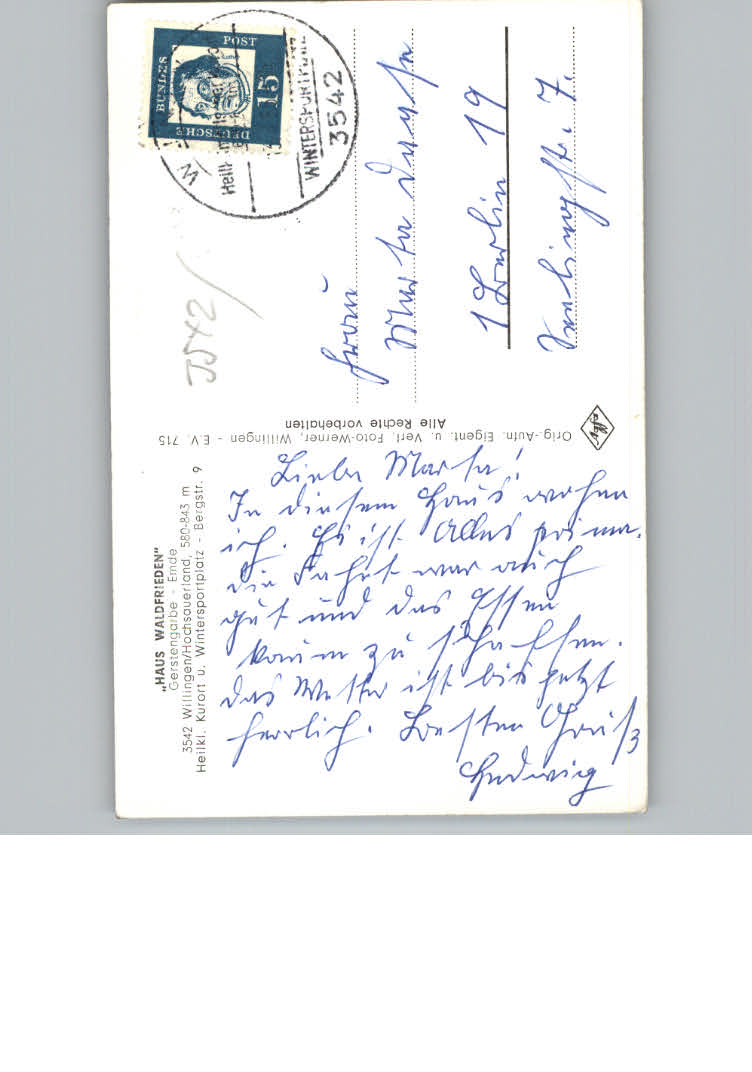 „HAUS WALDFRIEDEN"
Gerstengarbe - Emde
3542 Willingen/Hochsauerland, 580-843 m
Heilkl. Kurort u. Wintersportplatz - Bergstr. 9
Liebe Martha!
In diesem Haus wohne
ich. Es ist Alles prima.
Die Fahrt war auch
gut und das Essen
kaum zu schaffen.
Das Wetter ist bis jetzt
herrlich. Besten Gruß
Hedwig
Orig.-Aufn. Eigent. u. Verl. Foto-Werner, Willingen - E.V. 715
Alle Rechte vorbehalten
Agfa
DEUTSCHE
BUNDES
POST
15
W
Heilkl
WINTERSPORTPL
3542
3542
Frau
Martha
1 Berlin 19
7.